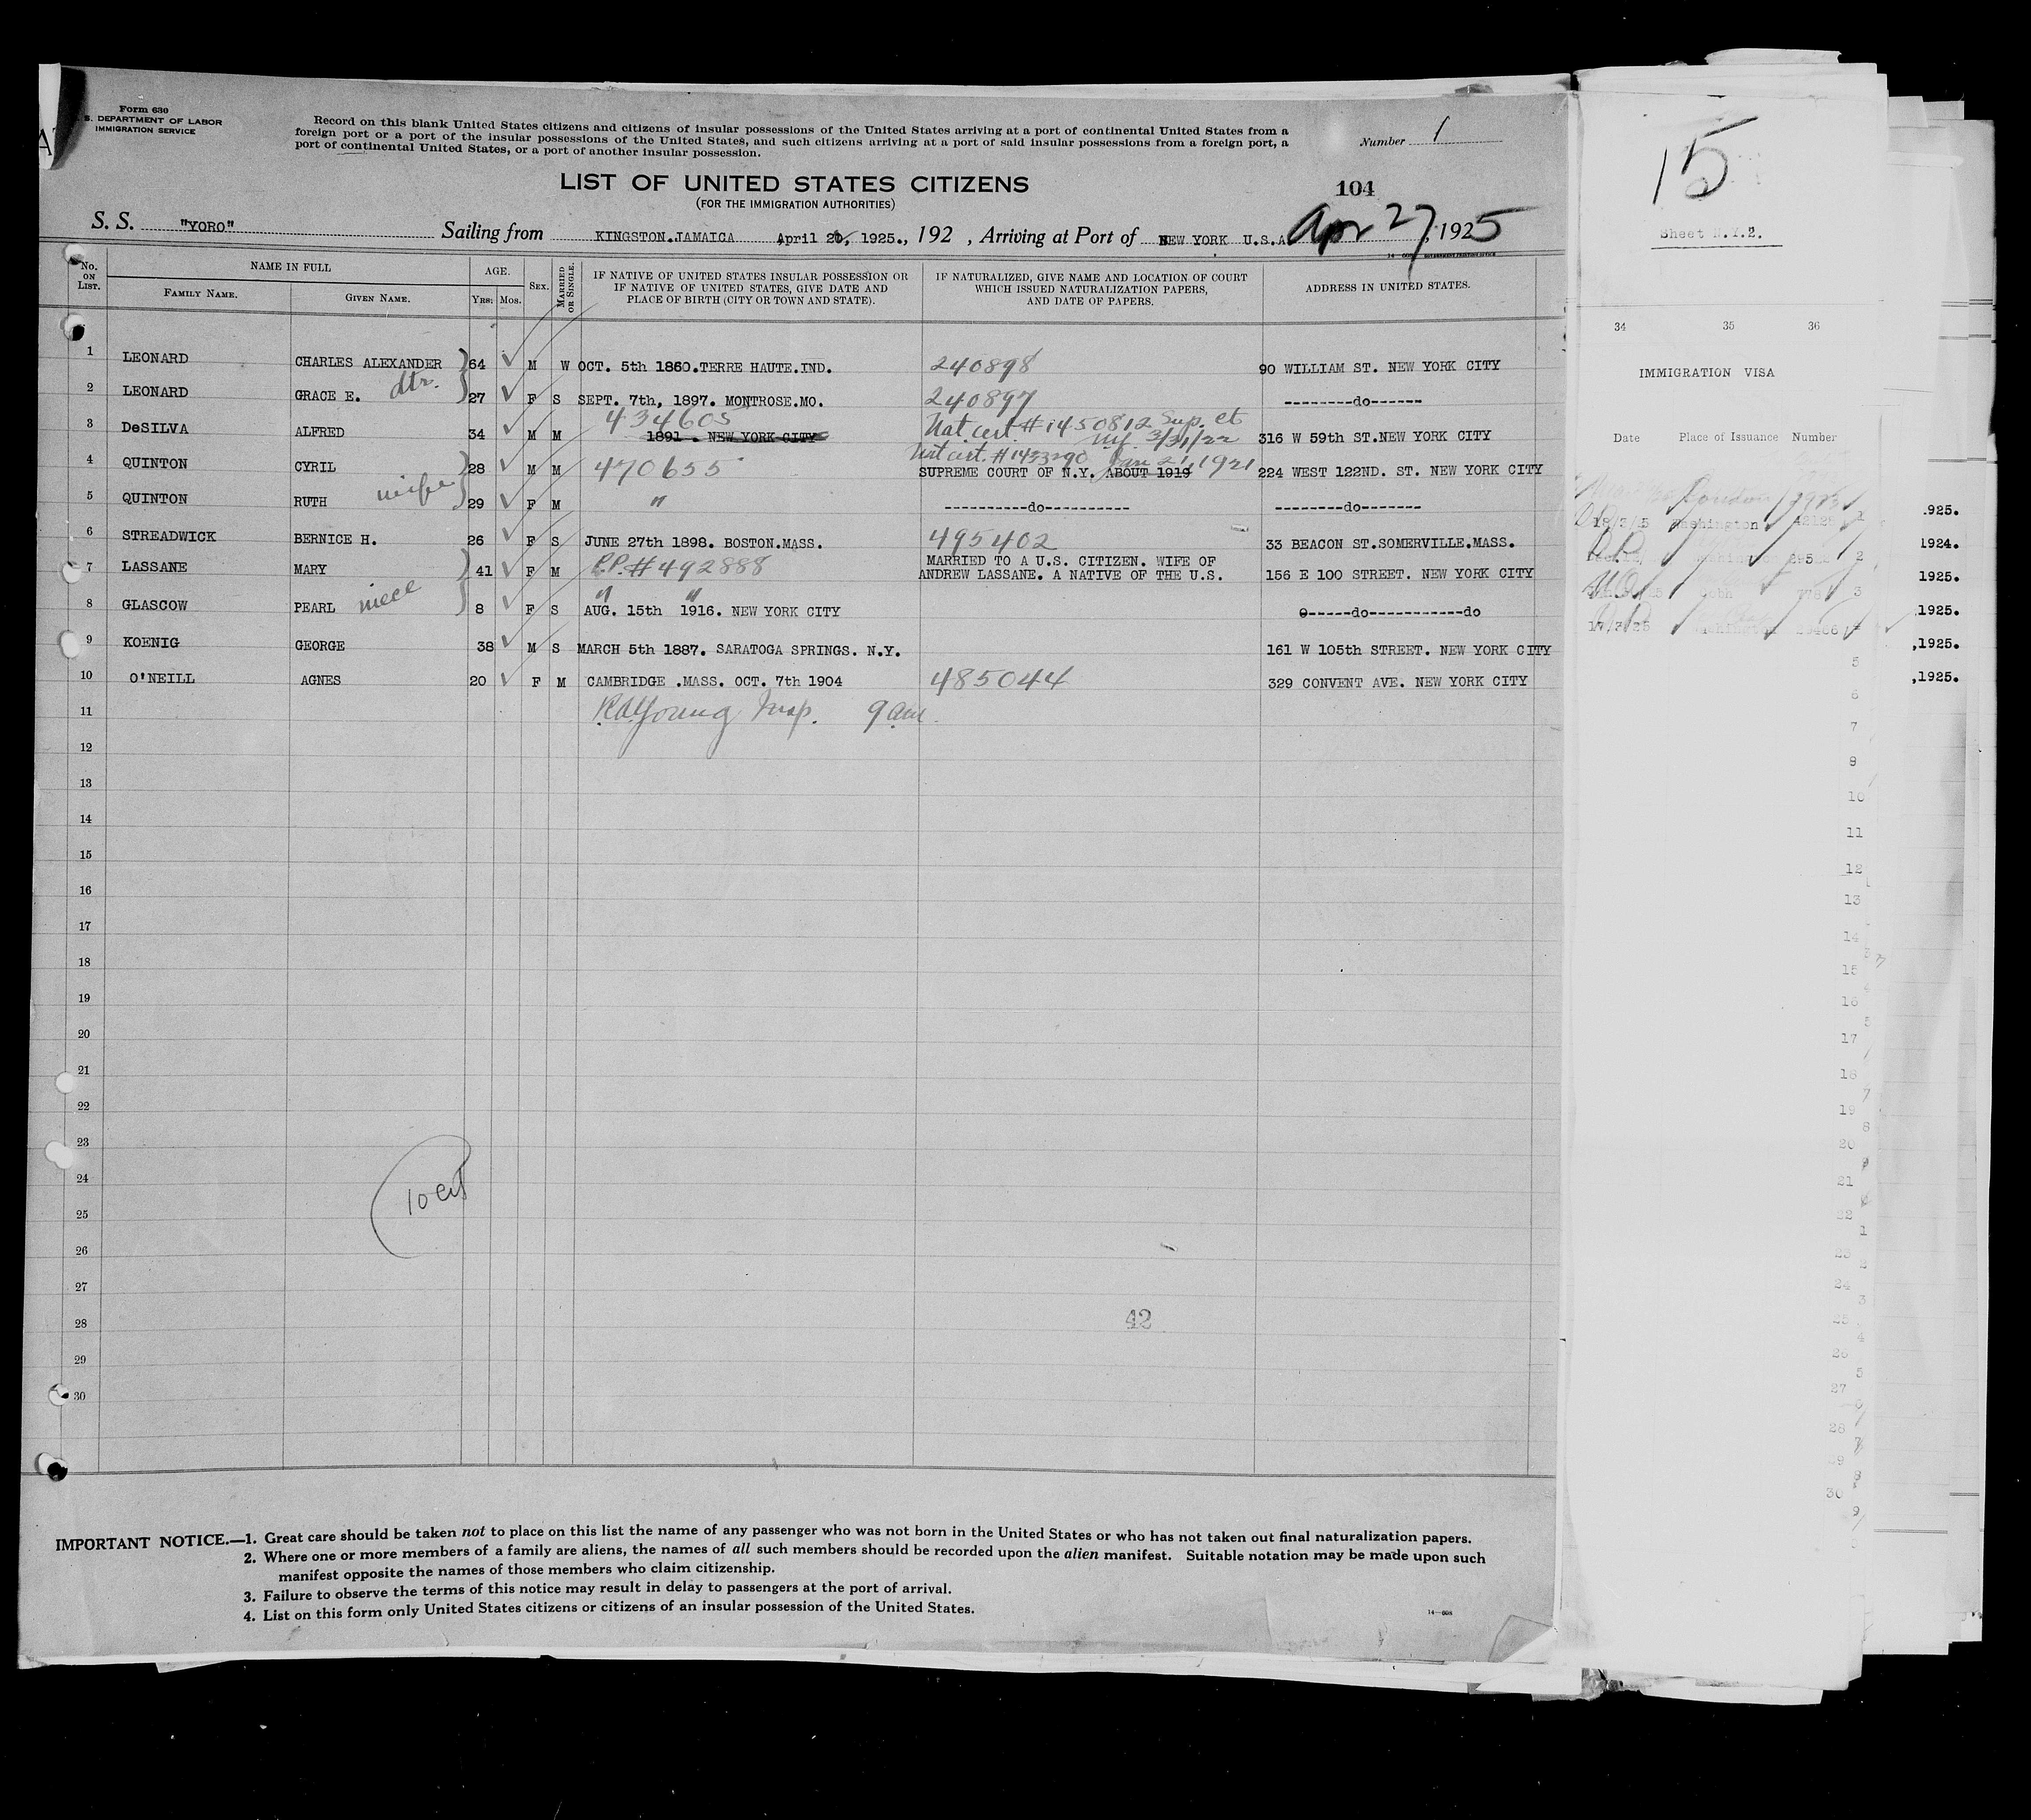 Form 630
S. DEPARTMENT OF LABOR
IMMIGRATION SERVICE
Record on this blank United States citizens and citizens of insular possessions of the United States arriving at a port of continental United States from a
foreign port or a port of the insular possessions of the United States, and such citizens arriving at a port of said insular possessions from a foreign port, a
port of continental United States, or a port of another insular possession.
Number 1
LIST OF UNITED STATES CITIZENS
(FOR THE IMMIGRATION AUTHORITIES)
104
S. S. "YORO" Sailing from KINGSTON.JAMAICA April 20, 1925., 192 , Arriving at Port of NEW YORK U.S.A Apr 27, 1925
No. ON LIST. NAME IN FULL AGE. SEX. MARRIED OR SINGLE. IF NATIVE OF UNITED STATES INSULAR POSSESSION OR IF NATIVE OF UNITED STATES, GIVE DATE AND PLACE OF BIRTH (CITY OR TOWN AND STATE). IF NATURALIZED, GIVE NAME AND LOCATION OF COURT WHICH ISSUED NATURALIZATION PAPERS, AND DATE OF PAPERS. ADDRESS IN UNITED STATES.
FAMILY NAME. GIVEN NAME. YRS. MOS.
1 LEONARD CHARLES ALEXANDER 64 M W OCT. 5th 1860.TERRE HAUTE.IND. 240898 90 WILLIAM ST. NEW YORK CITY
2 LEONARD GRACE E. dtr. 27 F S SEPT. 7th, 1897. MONTROSE.MO. 240897 --------do------
434605 Nat cert. # 1450812 Sup. ct
3 DeSILVA ALFRED 34 M M 1891 . NEW YORK CITY NY. 3/31/22 316 W 59th ST.NEW YORK CITY
Jan 21, 1921
4 QUINTON CYRIL 28 M M 470655 SUPREME COURT OF N.Y. ABOUT 1919 224 WEST 122ND. ST. NEW YORK CITY
5 QUINTON RUTH wife 29 F M " ----------do---------- --------do-------
6 STREADWICK BERNICE H. 26 F S JUNE 27th 1898. BOSTON.MASS. 495402 33 BEACON ST.SOMERVILLE.MASS.
MARRIED TO A U.S. CITIZEN. WIFE OF
7 LASSANE MARY 41 F M P.P. # 492888 ANDREW LASSANE. A NATIVE OF THE U.S. 156 E 100 STREET. NEW YORK CITY
" "
8 GLASCOW PEARL niece 8 F S AUG. 15th 1916. NEW YORK CITY -----do-----------do
9 KOENIG GEORGE 38 M S MARCH 5th 1887. SARATOGA SPRINGS. N.Y. 161 W 105th STREET. NEW YORK CITY
10 O'NEILL AGNES 20 F M CAMBRIDGE .MASS. OCT. 7th 1904 485044 329 CONVENT AVE. NEW YORK CITY
11 Young Insp. 9 am.
12
13
14
15
16
17
18
19
20
21
22
23
24
10 cit
25
26
27
28
42
29
30
IMPORTANT NOTICE.—1. Great care should be taken not to place on this list the name of any passenger who was not born in the United States or who has not taken out final naturalization papers.
2. Where one or more members of a family are aliens, the names of all such members should be recorded upon the alien manifest. Suitable notation may be made upon such
manifest opposite the names of those members who claim citizenship.
3. Failure to observe the terms of this notice may result in delay to passengers at the port of arrival.
4. List on this form only United States citizens or citizens of an insular possession of the United States.
15
Sheet N.Y.2.
34 35 36
IMMIGRATION VISA
Date Place of Issuance Number
London
18/3/25 Washington
17/3/25
.925.
1924.
1925.
.1925.
,1925.
,1925.
5
6
7
9
10
11
12
13
14
15
16
17
18
19
20
21
22
23
24
25
26
27
28
30